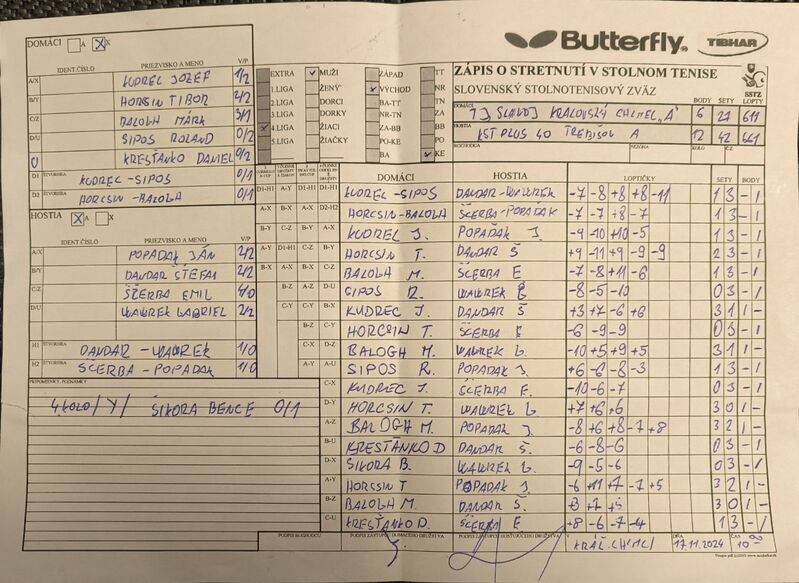 DOMÁCI A X
IDENT.ČÍSLO PRIEZVISKO A MENO V/P
A/X KUDREC JOZEF 1/2
B/Y HORCSIN TIBOR 2/2
C/Z BALOGH MÁRK 3/1
D/U SIPOS ROLAND 0/2
U KRESŤANKO DANIEL 0/2
D1 ŠTVORHRA KUDREC - SIPOS 0/1
D2 HORCSIN - BALOGH 0/1
HOSTIA A X
IDENT.ČÍSLO PRIEZVISKO A MENO V/P
A/X POPAĎAK JÁN 2/2
B/Y DANDÁR ŠTEFAN 2/2
C/Z ŠČERBA EMIL 4/0
D/U WAWREK GABRIEL 2/2
H1 ŠTVORHRA DANDAR - WAWREK 1/0
H2 ŠČERBA - POPAĎAK 1/0
PRIPOMIENKY, POZNÁMKY
4.KOLO /Y/ ŠIKORA BENCE 0/1
Butterfly TIBHAR
EXTRA MUŽI ZÁPAD TT
1.LIGA ŽENY VÝCHOD NR
2.LIGA DORCI BA-TT TN
3.LIGA DORKY NR-TN ZA
4.LIGA ŽIACI ZA-BB BB
5.LIGA ŽIAČKY PO-KE PO
BA KE
ZÁPIS O STRETNUTÍ V STOLNOM TENISE
SLOVENSKÝ STOLNOTENISOVÝ ZVÄZ
SSTZ
DOMÁCI BODY SETY LOPTY
TJ SLAVOJ KRÁĽOVSKÝ CHLMEC "A" 6 27 611
HOSTIA
KST PLUS 40 TREBIŠOV A 12 42 661
ROZHODCA SEZÓNA KOLO ČZ
DOMÁCI HOSTIA LOPTIČKY SETY BODY
D1-H1 A-Y D1-H1 D1-H1 KUDREC - SIPOS DANDAR - WAWREK -7 -8 +8 +8 -11 1 3 - 1
A-X B-X A-X D2-H2 HORCSIN - BALOGH ŠČERBA - POPAĎAK -7 -7 +8 -7 1 3 - 1
B-Y C-Z B-Y A-X KUDREC J. POPAĎAK J. -9 -10 +10 -5 1 3 - 1
HORCSIN T. DANDAR Š +9 -11 +9 -9 -9 2 3 - 1
BALOGH M. ŠČERBA E -7 -8 +11 -6 1 3 - 1
D-U SIPOS R. WAWREK G -8 -5 -10 0 3 - 1
A-Y KUDREC J. DANDAR Š +3 +7 -6 +6 3 1 1 -
B-Z HORCSIN T. ŠČERBA E -6 -9 -9 0 3 - 1
C-U BALOGH M. WAWREK G. -10 +5 +9 +5 3 1 1 -
D-X SIPOS R. POPAĎAK J. +6 -6 -8 -3 1 3 - 1
KUDREC J. ŠČERBA E. -10 -6 -7 0 3 - 1
HORCSIN T. WAWREK G. +7 +6 +6 3 0 1 -
BALOGH M. POPAĎAK J. -8 +6 +8 -7 +8 3 2 1 -
KRESŤANKO D DANDAR Š. -6 -8 -6 0 3 - 1
D-X ŠIKORA B. WAWREK G. -9 -5 -6 0 3 - 1
A-Y HORCSIN T POPAĎAK J. -6 +11 +7 -7 +5 3 2 1 -
B-Z BALOGH M. DANDAR Š. +3 +7 +5 3 0 1 -
C-U KRESŤANKO D. ŠČERBA E +8 -6 -7 -4 1 3 - 1
PODPIS ROZHODCU PODPIS ZÁSTUPCU DOMÁCEHO DRUŽSTVA PODPIS ZÁSTUPCU HOSŤUJÚCEHO DRUŽSTVA V KRÁĽ. CHLMCI DŇA 17.11.2024 ČAS 10 00